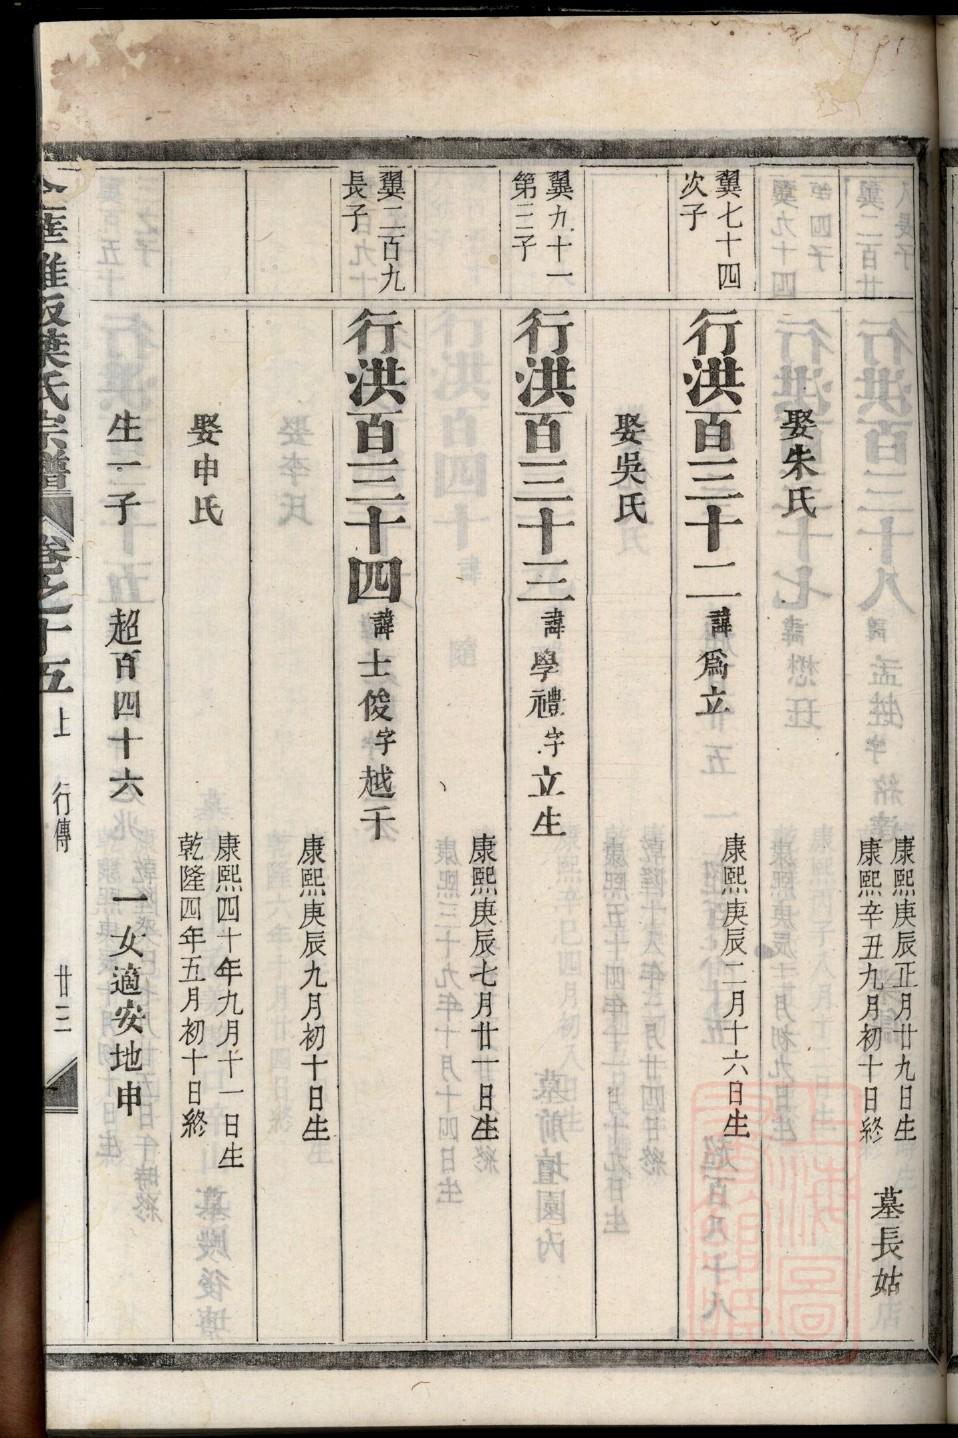 康熙庚辰正月廿九日生
康熙辛丑九月初十日終
墓長姑
娶朱氏
翼七十四
次子
行洪百三十二
諱爲立
康熙庚辰二月十六日生
娶吳氏
翼九十一
第三子
行洪百三十三
諱學禮字立生
康熙庚辰七月廿一日生
翼二百九
長子
行洪百三十四
諱士俊字越千
康熙庚辰九月初十日生
娶申氏
康熙四十年九月十一日生
乾隆四年五月初十日終
生一子
超百四十六
一女適安地申
葉氏宗譜
卷之十五
上
行傳
廿三